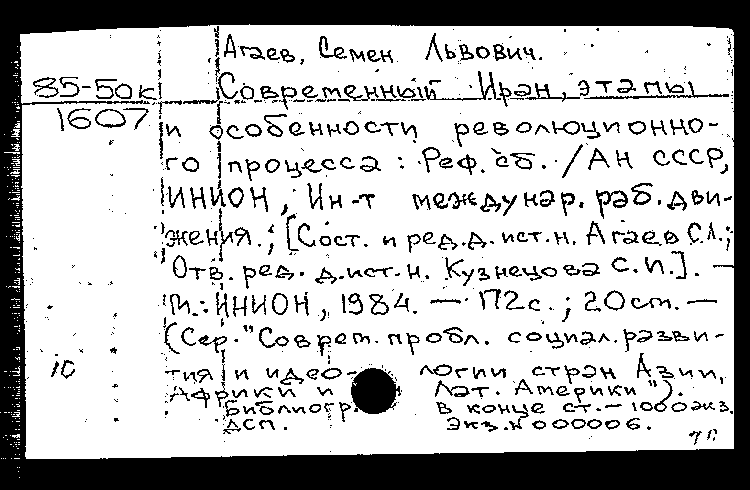 Агаев, Семен Львович.
85-50к Современный Иран, этапы
1607 и особенности революционно-
го процесса : Реф. сб. / АН СССР,
ИНИОН, Ин-т междунар. раб. дви-
жения.; [Сост. и ред. д. ист. н. Агаев С.Л.;
Отв. ред. д. ист. н. Кузнецова С.И.]. —
М.: ИНИОН, 1984. — 172с.; 20см. —
(Сер. "Соврем. пробл. социал. разви-
тия и идеологии стран Азии,
Африки и Лат. Америки").
Библиогр. в конце ст. — 1000экз.
ДСП. Экз. N 000006.